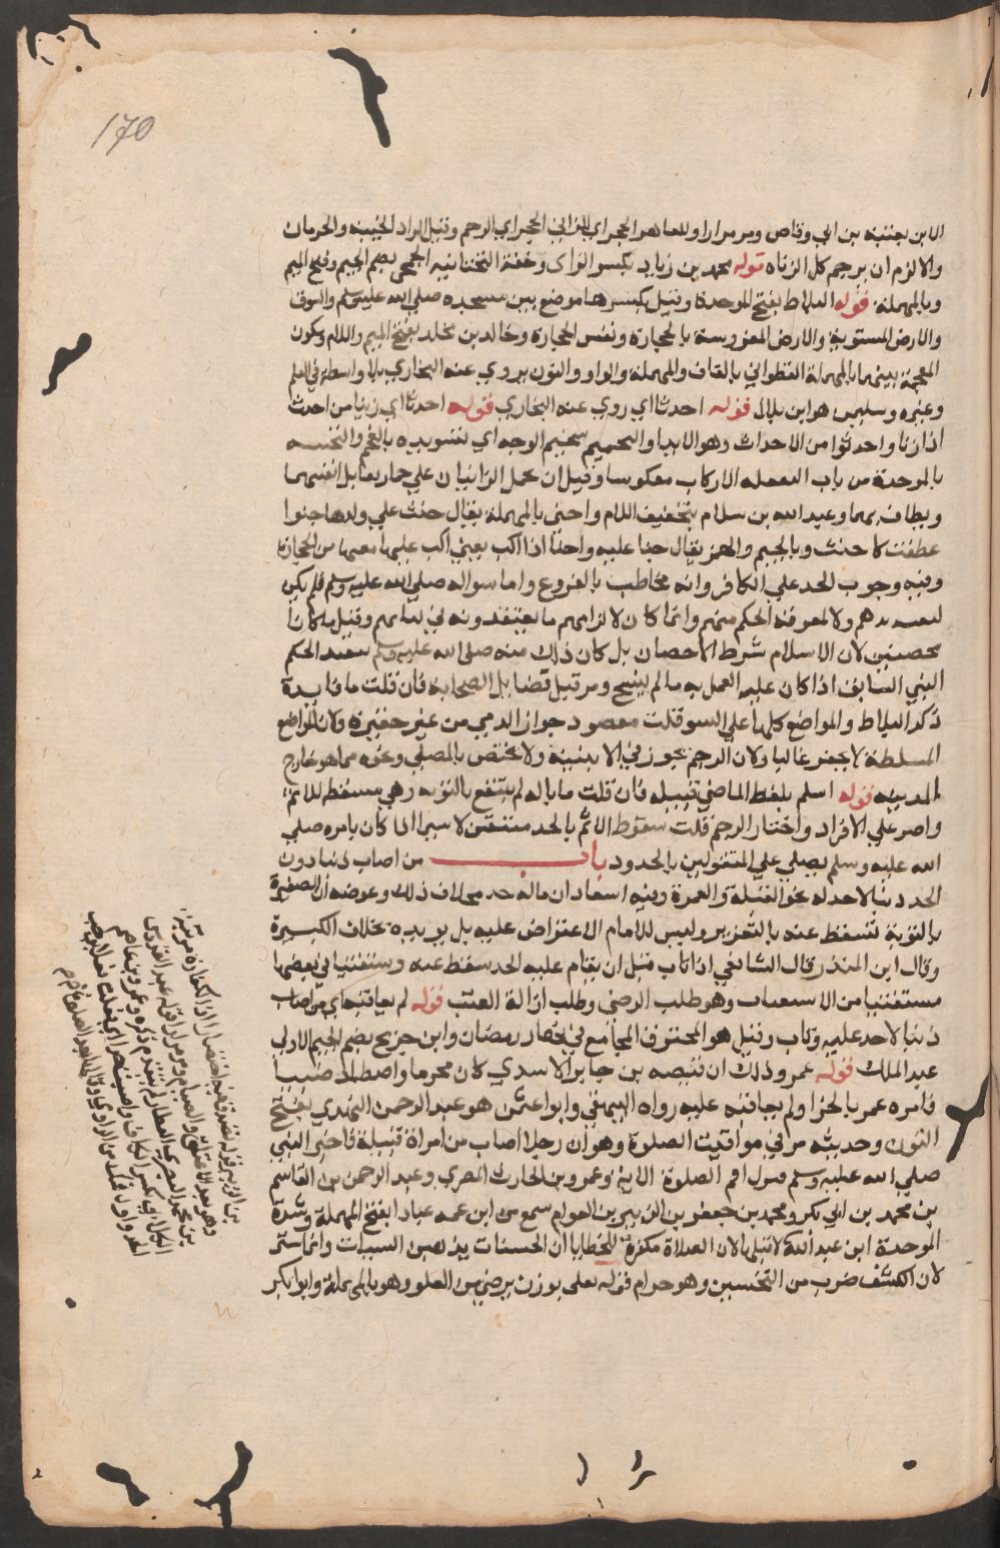 170
الابن بعتبة بن ابي وقاص ومر مرارا وللعاهر الحجر اي للزاني الحجر اي الرجم وقيل المراد الخيبة والحرمان
والا لزم ان يرجم كل الزناة قوله محمد بن زياد بكسر الزاي وخفة التحتانية الجمحي بضم الجيم وفتح الميم
وبالمهملة قوله البلاط بفتح الموحدة وقيل بكسرها موضع بين مسجده صلي الله عليه وسلم والسوق
والارض المستوية والارض المفروسة بالحجارة ونفس الحجارة وخالد بن مخلد بفتح الميم واللام وسكون
المعجمة بينهما بالمهملة القطواني بالقاف والمهملة والواو والنون يروي عنه البخاري بلا واسطة في العلم
وغيره وسليمن هو ابن بلال قوله احدثا اي روي عنه البخاري قوله احدثا اي زنيا من احدث
اذا زنا واحدثوا من الاحداث وهو الابدا والتحميم تحميم الوجه اي تسويده بالفحم والتجبيه
بالموحدة من باب التفعلة الاركاب معكوسا وقيل ان يحمل الزانيان علي حمار يقابل اقفيتهما
ويطاف بهما وعبد الله بن سلام بتخفيف اللام واحني بالمهملة يقال حنت علي ولدها حنوا
عطفت كاحنت وبالجيم والهمز يقال جنا عليه واجنا اذا اكب يعني اكب عليها يقيها من الحجارة
وفيه وجوب الحد علي الكافر وانه مخاطب بالفروع واما سواله صلي الله عليه وسلم فلم يكن
لتقليدهم ولا لمعرفة الحكم منهم وانما كان لالزامهم ما يعتقدونه في كتابهم وقيل ما كانا
محصنين لان الاسلام شرط الاحصان بل كان ذلك منه صلي الله عليه وسلم تنفيذ الحكم
النبي السابق اذا كان عليه العمل به ما لم ينسخ ومر قبيل فضايل الصحابة فان قلت ما فايدة
ذكر البلاط والمواضع كلها علي السو قلت مقصود جواز الرجم من غير حفيرة ولان المواضع
المبلطة لا يحفر غالبا ولان الرجم يجوز في الابنية ولا يختص بالمصلي ونحوه مما هو خارج
المدينة قوله اسلم بلفظ الماضي قبيلة فان قلت ما باله لم ينتفع بالتوبة وهي مسقطة للاثم
واصر علي الاقرار واختار الرجم قلت سقوط الاثم بالحد متيقن لا سيما اذا كان بامره صلي
الله عليه وسلم يصلي علي المقتولين بالحدود باب من اصاب ذنبا دون
الحد ذنبا لا حد له نحو القبلة والغمزة وفيه اشعار ان ما له حد بخلاف ذلك وغرضه ان الصغيرة
بالتوبة تسقط عنه بالتعزير وليس للامام الاعتراض عليه بل يويده بخلاف الكبيرة
وقال ابن المنذر قال الشافعي اذا تاب قبل ان يقام عليه الحد سقط عنه ومستفتيا في بعضها
مستعتبا من الاستعتاب وهو طلب الرضي وطلب ازالة العتب قوله لم يعاقبه اي من اصاب
ذنبا لا حد عليه وتاب وقيل هو المحترق المجامع في نهار رمضان وابن جريج بضم الجيم الاولي
عبد الملك قوله عمر وذلك ان قبيصه بن جابر الاسدي كان محرما واصطاد ظبيا
فامره عمر بالجزا ولم يعاقبه عليه رواه البيهقي وابو عثمن هو عبد الرحمن النهدي بفتح
النون وحديثه مر في مواقيت الصلوة وهو ان رجلا اصاب من امراة قبلة فاخبر النبي
صلي الله عليه وسلم فنزل اقم الصلوة الاية وعمرو بن الحارث المصري وعبد الرحمن بن القاسم
بن محمد بن ابي بكر ومحمد بن جعفر بن الزبير بن العوام سمع من ابن عمه عباد بفتح المهملة وشدة
الموحدة ابن عبد الله لا قبلها لان الصلاة مكفرة للخطايا ان الحسنات يذهبن السيئات وانما ستر
لان الكشف ضرب من التجسس وهو حرام قوله يعلي بوزن يرضي من العلو وهو بالمهملة وابو بكر